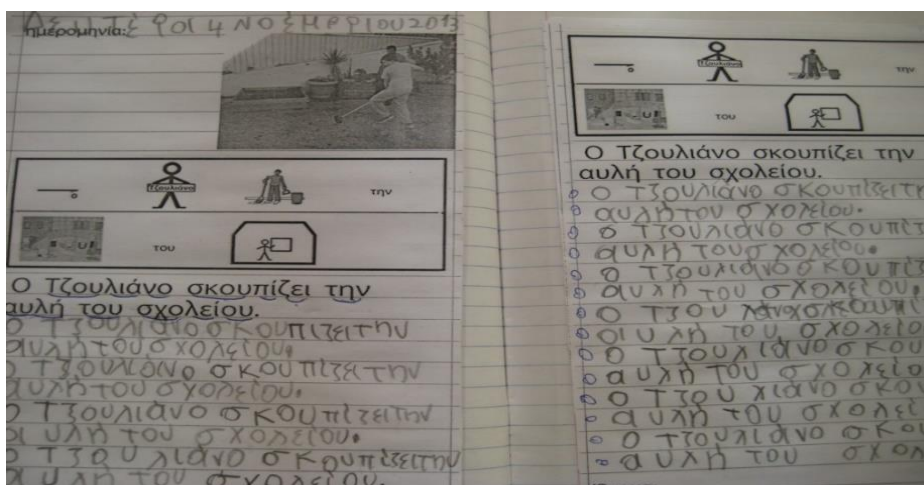 ημερομηνία: Δευτέρα 4 ΝοΕμβριου 2013
Τζουλιάνο
την
του
Ο Τζουλιάνο σκουπίζει την
αυλή του σχολείου.
ο τζουλιάνο σκουπίζει την
αυλή του σχολείου.
ο τζουλιάνο σκουπίζει την
αυλή του σχολείου.
ο τζουλιάνο σκουπίζει την
αυλή του σχολείου.
ο τζουλιάνο σκουπίζει την
αυλή του σχολείου.
Τζουλιάνο
την
του
Ο Τζουλιάνο σκουπίζει την
αυλή του σχολείου.
ο τζουλιάνο σκουπίζει τ
αυλή του σχολείου.
ο τζουλιάνο σκουπίζ
αυλή του σχολείου.
ο τζουλιάνο σκουπίζ
αυλή του σχολείου.
ο
αυλή του σχολείο
ο τζουλιάνο σκου
αυλή του σχολείο
ο τζουλιάνο σκο
αυλή του σχολεί
ο τζουλιάνο σκο
αυλή του σχολ